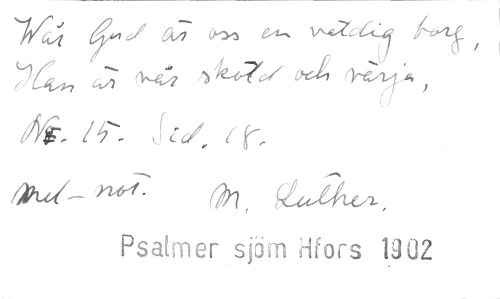 Wår Gud är oss en väldig borg,
Han är vår sköld och värja,
No. 15. Sid. 18.
med not. M. Luther.
Psalmer sjöm Hfors 1902